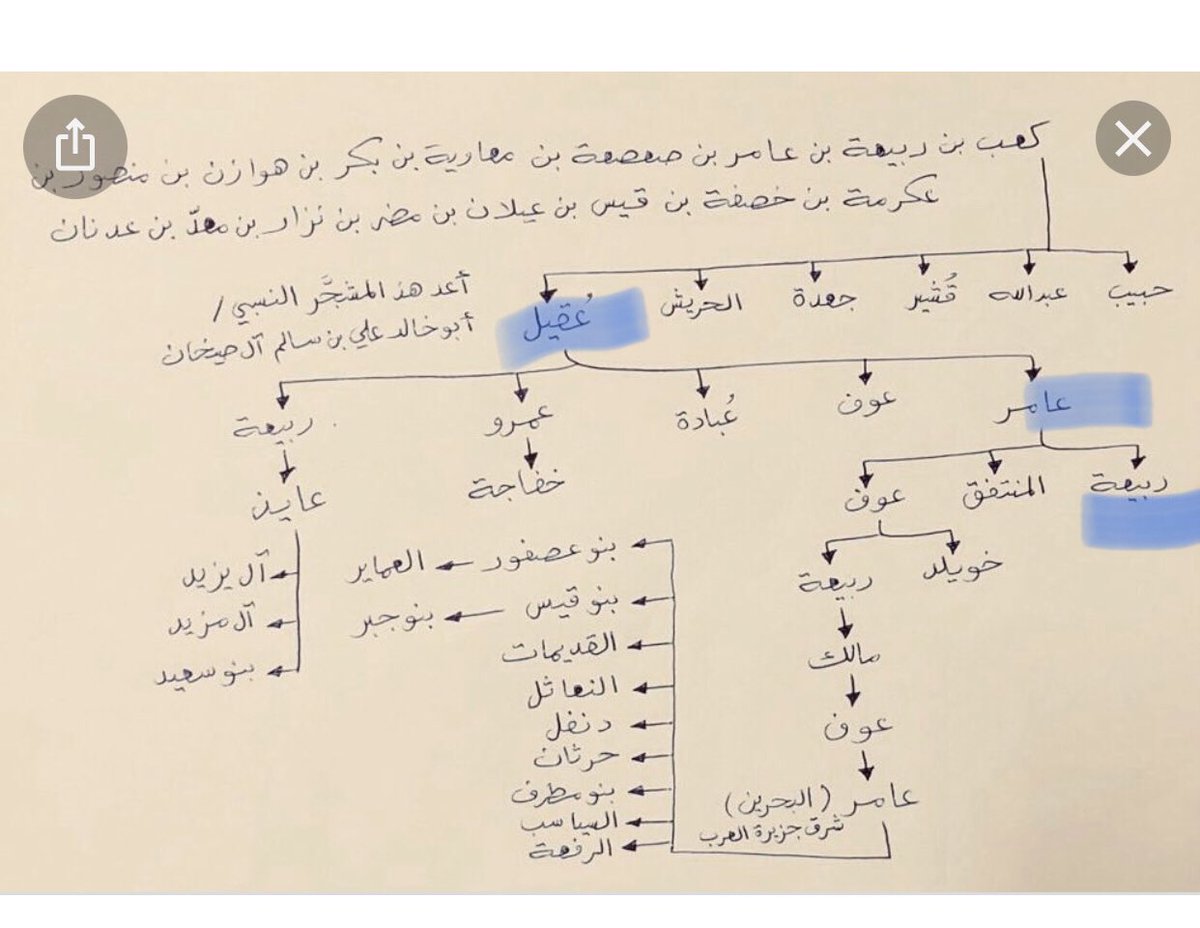 كعب بن ربيعة بن عامر بن صعصعة بن معاوية بن بكر بن هوازن بن منصور بن
عكرمة بن خصفة بن قيس بن عيلان بن مضر بن نزار بن معدّ بن عدنان
حبيب
عبدالله
قُشير
جعدة
الحريش
عُقيل
أعد هذ المشجَّر النسبي /
أبو خالد علي بن سالم آل صيخان
عامر
عوف
عُبادة
عمرو
ربيعة
ربيعة
المنتفق
عوف
خفاجة
عايذ
خويلد
ربيعة
مالك
عوف
عامر (البحرين)
شرق جزيرة العرب
بنو عصفور
العماير
بنو قيس
بنو جبر
القديمات
النعاثل
دنفل
حرثان
بنو مطرف
السياسب
الرفعة
آل يزيد
آل مزيد
بنو سعيد